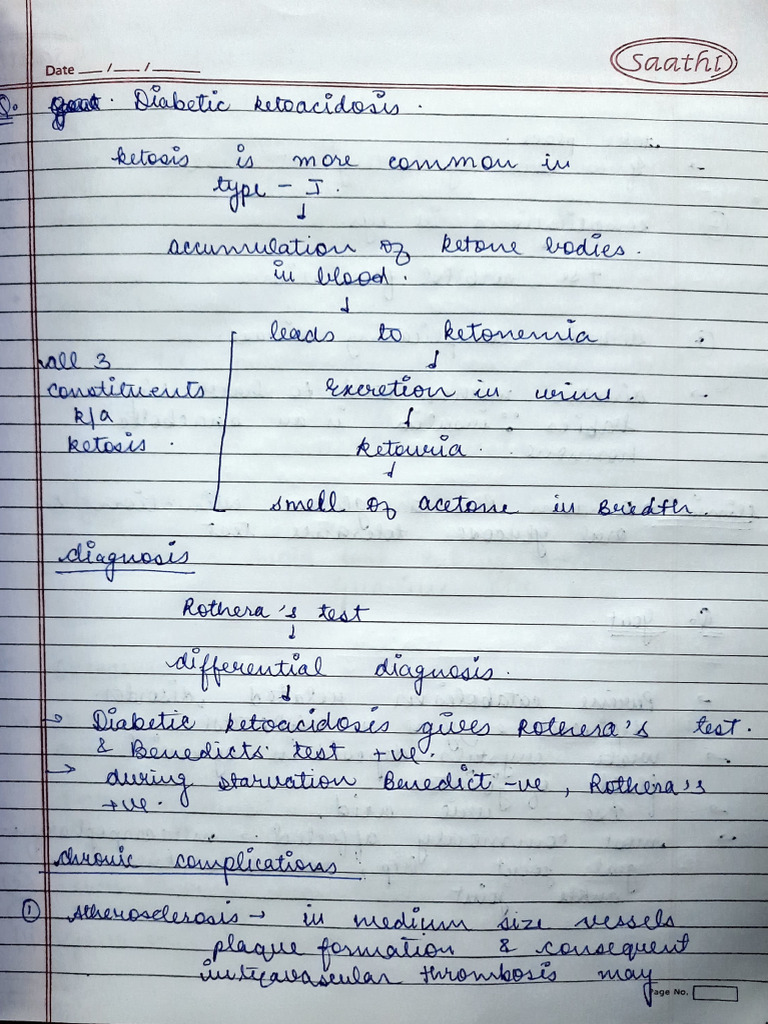 Saathi
Date __/__/____
Q. gout. Diabetic ketoacidosis.
ketosis is more common in
type - I.
↓
accumulation of ketone bodies.
in blood.
↓
leads to ketonemia
↓
all 3
constituents
k/a
ketosis.
excretion in urine.
↓
ketouria.
↓
smell of acetone in Bredth.
diagnosis
Rothera's test
↓
differential diagnosis.
↓
→ Diabetic ketoacidosis gives Rothera's test.
& Benedicts test +ve.
→ during starvation Benedict -ve, Rothera's
+ve.
chronic complications
① Atherosclerosis → in medium size vessels
plaque formation & consequent
intravascular thrombosis may
Page No.